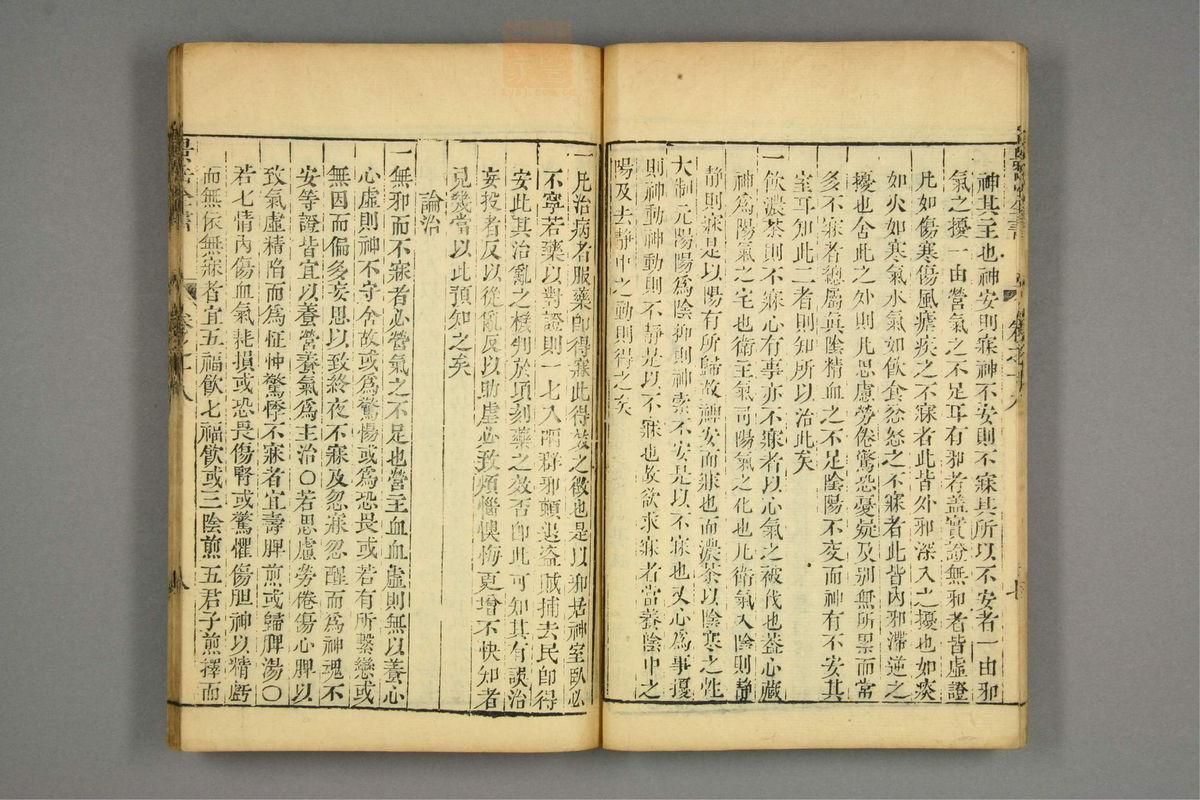 神其主也神安則寐神不安則不寐其所以不安者一由邪
氣之擾一由營氣之不足耳有邪者蓋實證無邪者皆虛證
凡如傷寒傷風瘧疾之不寐者此皆外邪深入之擾也如痰
如火如寒氣水氣如飲食忿怒之不寐者此皆內邪滯逆之
擾也舍此之外則凡思慮勞倦驚恐憂疑及別無所累而常
多不寐者總屬眞陰精血之不足陰陽不交而神有不安其
室耳知此二者則知所以治此矣
一飲濃茶則不寐心有事亦不寐者以心氣之被伐也蓋心藏
神爲陽氣之宅也衛主氣司陽氣之化也凡衛氣入陰則靜
靜則寐是以陽有所歸故神安而寐也而濃茶以陰寒之性
大制元陽陽爲陰抑則神索不安是以不寐也又心爲事擾
則神動神動則不靜是以不寐也故欲求寐者當養陰中之
陽及去靜中之動則得之矣
卷之十八
七
一凡治病者服藥即得寐此得效之徵也是以邪居神室臥必
不寧若藥以對證則一七入咽群邪頓退盜賊捕去民即得
安此其治亂之機判於頃刻藥之效否即此可知其有誤治
妄投者反以從亂反以助虐必致煩惱懊悔更增不快知者
見幾當以此預知之矣
論治
一無邪而不寐者必營氣之不足也營主血血虛則無以養心
心虛則神不守舍故或爲驚惕或爲恐畏或若有所繫戀或
無因而偏多妄思以致終夜不寐及忽寐忽醒而爲神魂不
安等證皆宜以養營養氣爲主治○若思慮勞倦傷心脾以
致氣虛精陷而爲怔忡驚悸不寐者宜壽脾煎或歸脾湯○
若七情內傷血氣耗損或恐畏傷腎或驚懼傷胆神以精虧
而無依無寐者宜五福飲七福飲或三陰煎五君子煎擇而
景岳全書
卷之十八
八